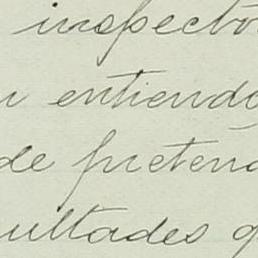 inspector
entiendo
de preten
ultades q